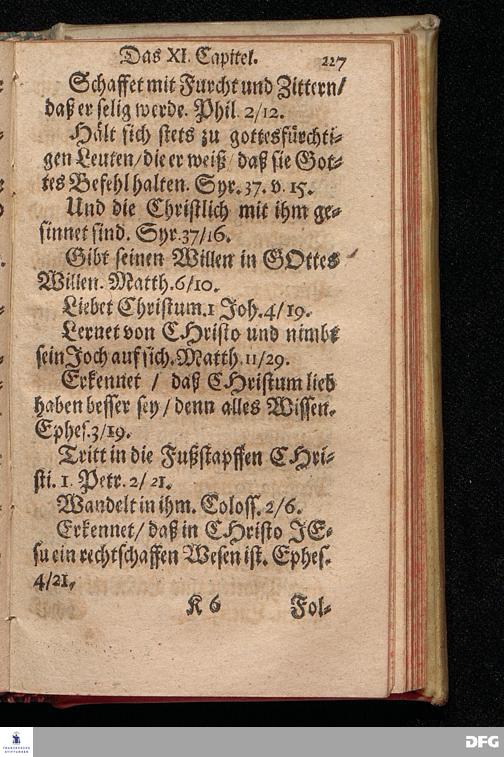 Das XI. Capitel. 227
Schaffet mit Furcht und Zittern/
daß er selig werde. Phil. 2/12.
Hält sich stets zu gottesfürchti-
gen Leuten/ die er weiß/ daß sie Got-
tes Befehl halten. Syr. 37. v. 15.
Und die Christlich mit ihm ge-
sinnet sind. Syr. 37/16.
Gibt seinen Willen in GOttes
Willen. Matth. 6/10.
Liebet Christum. 1 Joh. 4/19.
Lernet von CHristo und nimbt
sein Joch auf sich. Matth. 11/29.
Erkennet / daß CHristum lieb
haben besser sey/ denn alles Wissen.
Ephes. 3/19.
Tritt in die Fußstapffen CHri-
sti. 1. Petr. 2/ 21.
Wandelt in ihm. Coloss. 2/6.
Erkennet/ daß in CHristo JE-
su ein rechtschaffen Wesen ist. Ephes.
4/21.
K 6 Fol-
FRANCKESCHE
STIFTUNGEN
DFG